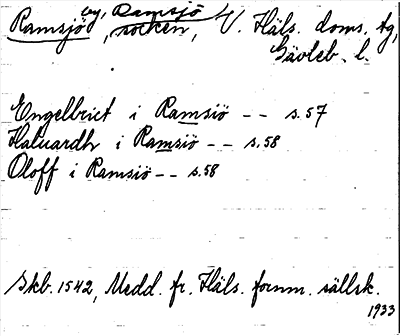 Ramsjö by, Ramsjö socken, V. Häls. doms. tg,
Gävleb. l.
Engelbrict i Ramsiö -- s.57
Haluardh i Ramsiö -- s.58
Oloff i Ramsiö -- s.58
Skb. 1542, Medd. fr. Häls. fornm. sällsk.
1933